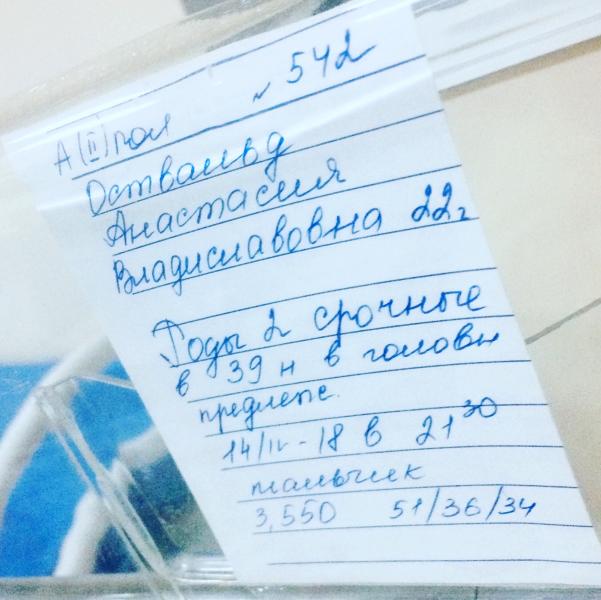 № 542
А (II) пол
Оствальд
Анастасия
Владиславовна 22г
Роды 2 срочные
в 39 н в головн
предлеж.
14/IV - 18 в 21 30
мальчик
3,550 51/36/34